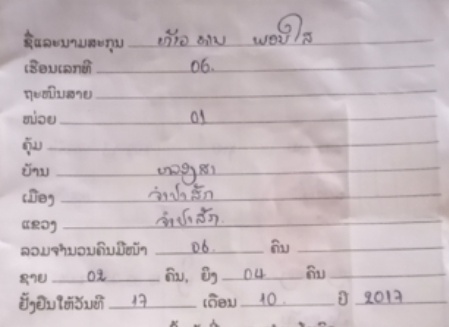 ຊື່ແລະນາມສະກຸນ ທ້າວ ພອນໃສ
ເຮືອນເລກທີ 06.
ຖະໜົນສາຍ
ໜ່ວຍ 01
ຄຸ້ມ
ບ້ານ
ເມືອງ ຈຳປາສັກ
ແຂວງ ຈຳປາສັກ.
ລວມຈຳນວນຄົນມີໜ້າ 06. ຄົນ
ຊາຍ 02 ຄົນ, ຍິງ 04 ຄົນ
ຢັ້ງຢືນໃຫ້ວັນທີ 17 ເດືອນ 10. ປີ 2017